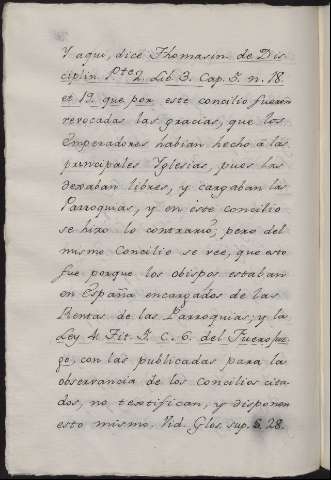 Y aqui, dice Thomasin de Dis-
ciplin. P.te 2. Lib 3. Cap. 5. n. 18.
et 19. que por este concilio fueron
revocadas las gracias, que los
Emperadores habian hecho à las
principales Yglesias, pues las
dexaban libres, y cargaban las
Parroquias, y en este concilio
se hizo lo contrario; pero del
mismo Concilio se vee, que esto
fue porque los obispos estaban
en España encargados de las
Rentas de las Parroquias; y la
Ley 4. Tit. 5. C. 6. del Fuero Juz-
go, con las publicadas para la
observancia de los Concilios cita-
dos, no textifican, y disponen
esto mismo. Vid. Glos. sup. 5. 28.